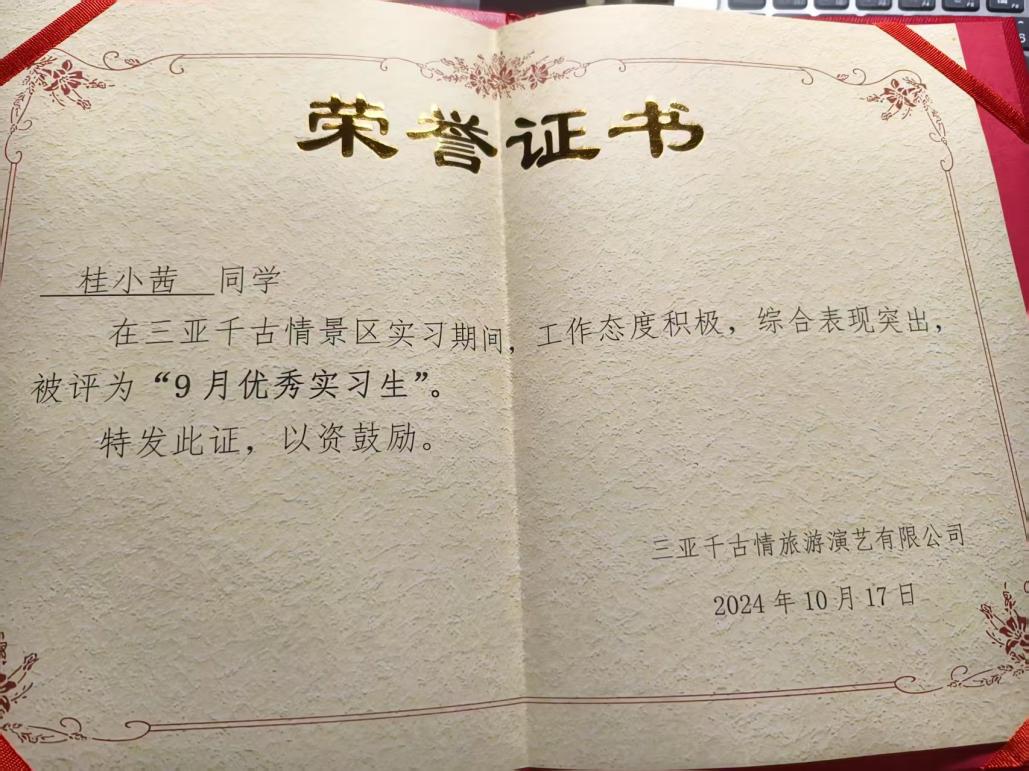 荣誉证书
桂小茜 同学
在三亚千古情景区实习期间，工作态度积极，综合表现突出，
被评为“9月优秀实习生”。
特发此证，以资鼓励。
三亚千古情旅游演艺有限公司
2024年10月17日